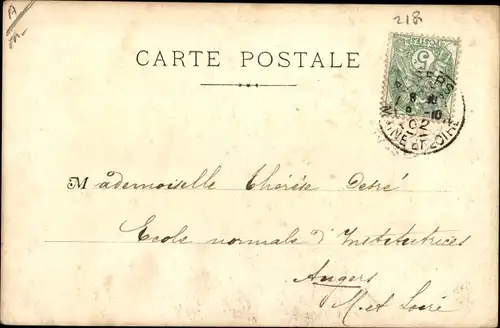 A
m.
218
CARTE POSTALE
5
ANGERS
8
10
02
MAINE ET LOIRE
Mademoiselle Thérèse Desré
Ecole normale d'Institutrices
Angers
M. et Loire